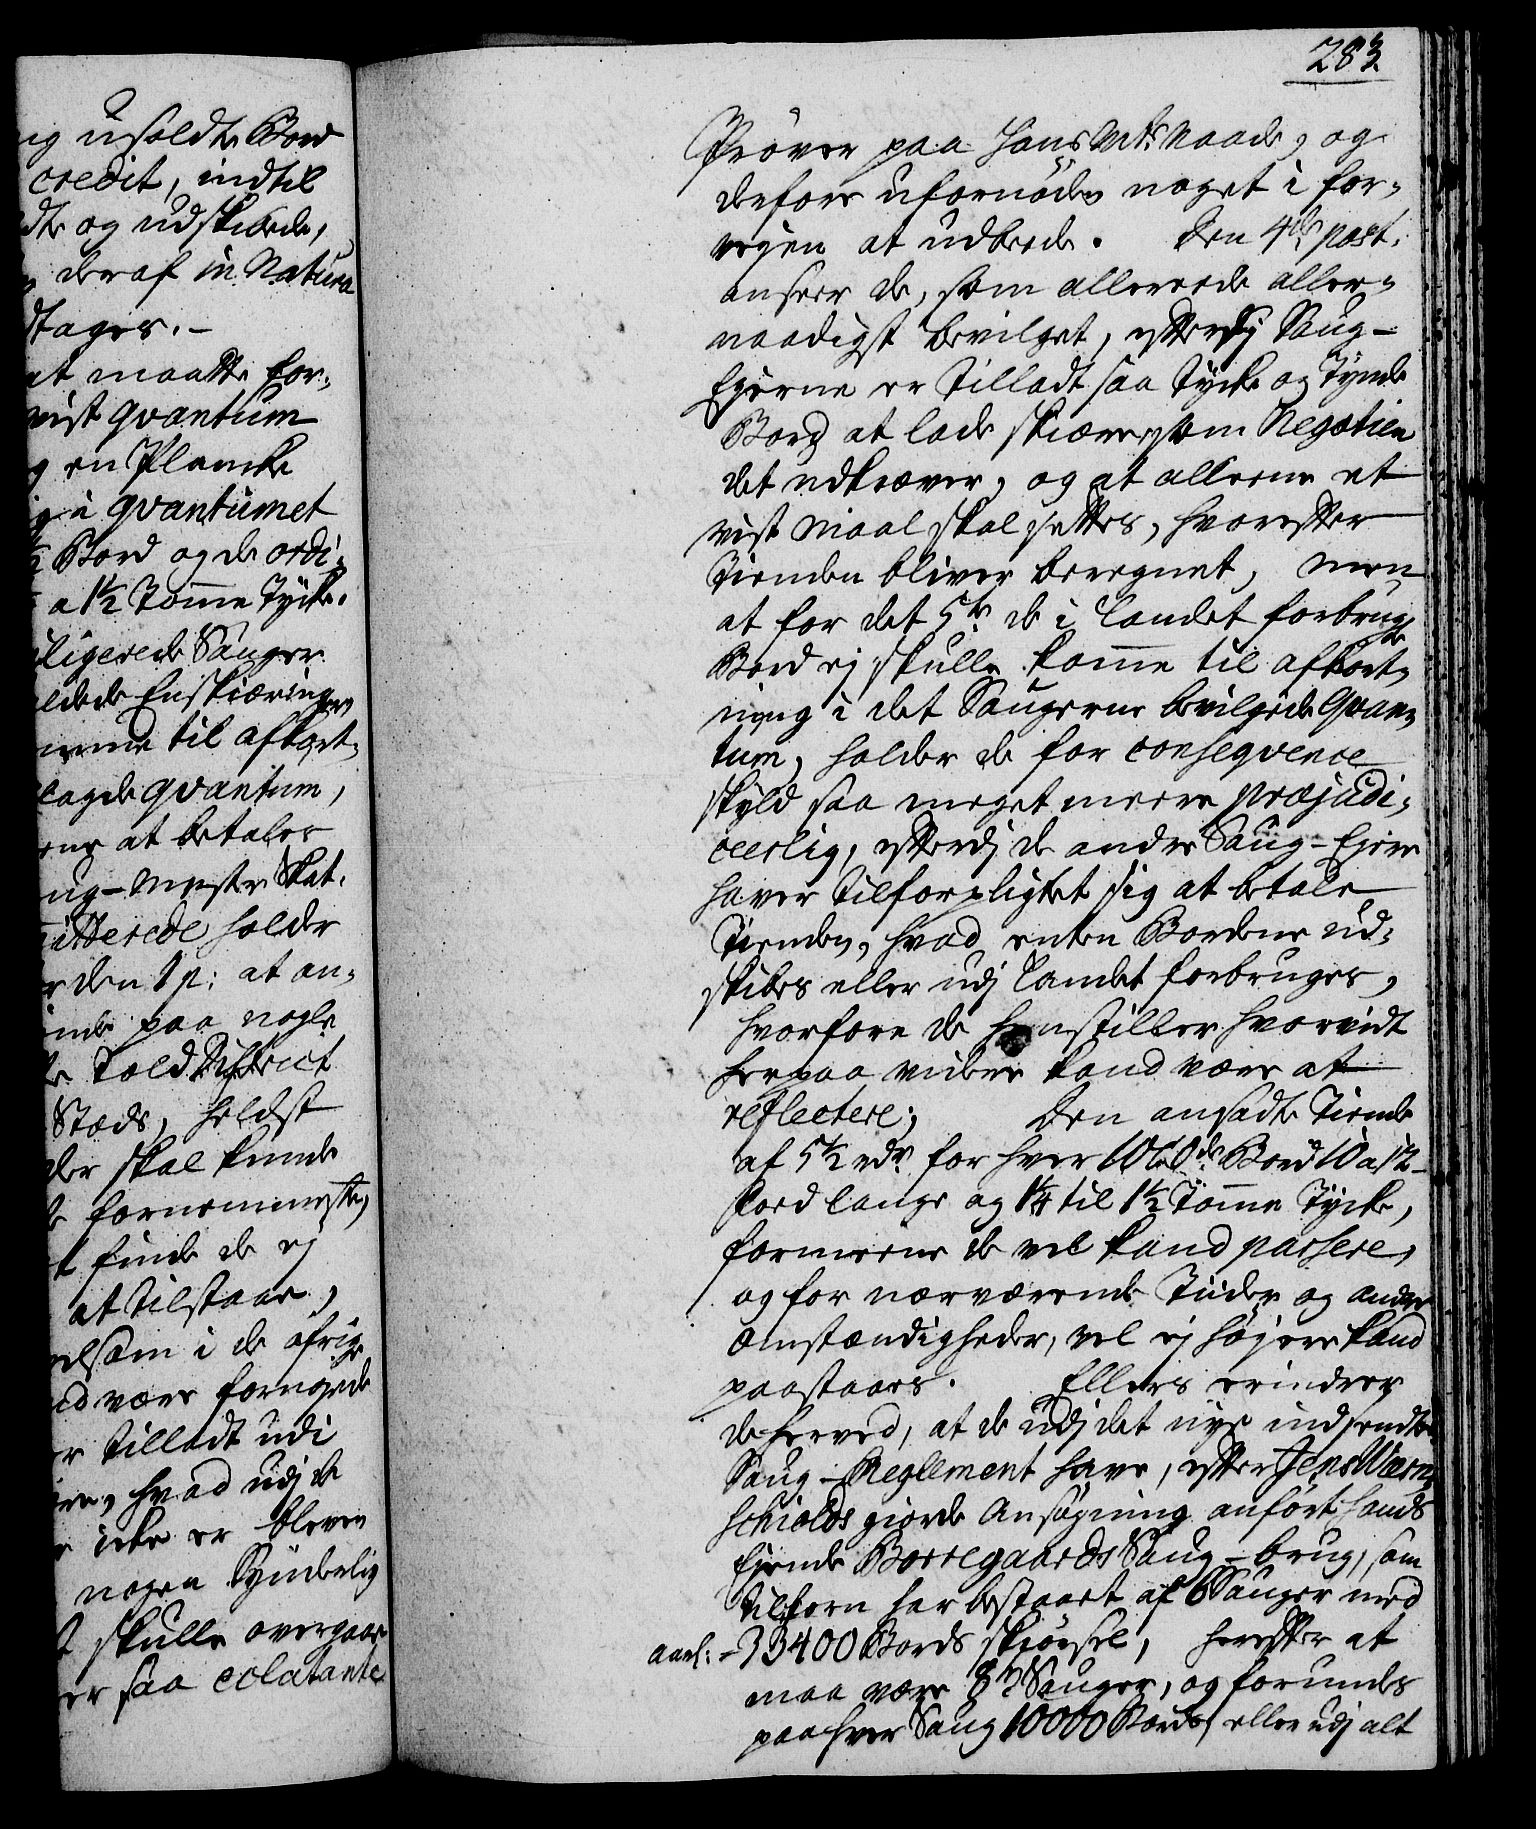 283.
ig usoldte Bord
credit, indtil
dte og udskibede,
deraf in Natura
dtages.-
at maatte for-
vist qvantum
en Plancke
i qvantumet
½ Bord og de ordi-
a 1½ Tomme Tycke.
ligerede Sauger
ldede Enskiæringer
mme til afkort-
lagde qvantum,
erne at betales
ug-Mester Skat.
itterede holder
den 1 p: at an-
inde paa nogle
Told District
Stæds, heldst
der skal kunde
fornemmeste,
finde de ej
at tilstaae,
velsom i de øfrige
id være fornøjede
er tilladt udi
hvad udj de
icke er bleven
nogen synderlig
skulle overgaae
er saa eclatante
Prøver paa Hans Mts Naade, og
derfore ufornøden noget i for-
vejen at udbede. Den 4de post.
anseer de, som allereede aller-
naadigst bevilget, efterdj Saug-
Ejerne er tilladt saa Tycke og Tynde
Bord at lade skiære, som Negotien
det udkræver, og at alleene et
vist Maal skal settes, hvorefter
Tienden bliver beregnet, men
at for det 5te de i Landet forbrugte
Bord ej skulle komme til afkort-
ning i det Saugerne bevilgede Qvan-
tum, holder de for conseqvence
skyld saa meget meere præjudi-
ceerlig, efterdj de andre Saug-Ejere
haver tilforpligtet sig at betale
Tienden, hvad enten Bordene ud-
skibes eller udj Landet forbruges,
hvorfore de henstiller hvorvidt
herpaa videre kand være at
reflectere; Den ansadte Tiende
af 5½ rdr for hver 1000de Bord 10 a 12
foed lange og 1¼ til 1½ Tomme Tycke,
formeene de vel kand passere,
og for nærværende Tiider og andre
omstændigheder, vel ej højere kand
paastaaes. Ellers erindrer
de herved, at de udj det nye indsendte
Saug-Reglement have, efter Jens Wærn-
schiolds giorde Ansøgning anført hands
Ejende Borregaards Saug-brug, som
tilforn har bestaaet af 6 Sauger med
aarl: - 33400 Bords skiørsel, herefter at
maa være 8te Sauger, og forundes
paa hver Saug 10000 Bord, eller udj alt